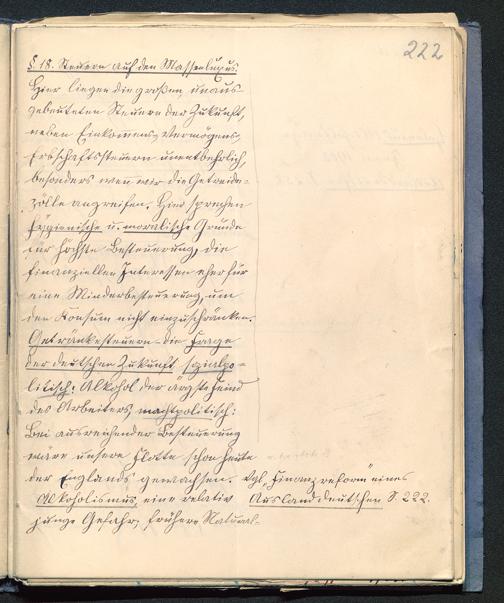 222
§ 18. Steuern auf den Massenluxus.
Hier liegen die großen, unaus-
gebeuteten Steuern der Zukunft,
neben Einkommens-, Vermögens-,
Erbschaftssteuern unentbehrlich,
besonders wenn wir die Getreide-
zölle angreifen. Hier sprechen
hygienische u. moralische Gründe
für höchste Besteuerung, die
finanziellen Interessen eher für
eine Minderbesteuerung, um
den Konsum nicht einzuschränken.
Getränkesteuern – die Frage
der deutschen Zukunft sozialpo-
litisch: Alkohol der ärgste Feind
des Arbeiters, machtpolitisch:
Bei ausreichender Besteuerung
wäre unsere Flotte schon heute
der Englands gewachsen.
Alkoholismus, eine relativ
junge Gefahr, frühere Natural-
Vgl. „Finanzreform" eines
Auslanddeutschen S. 222.